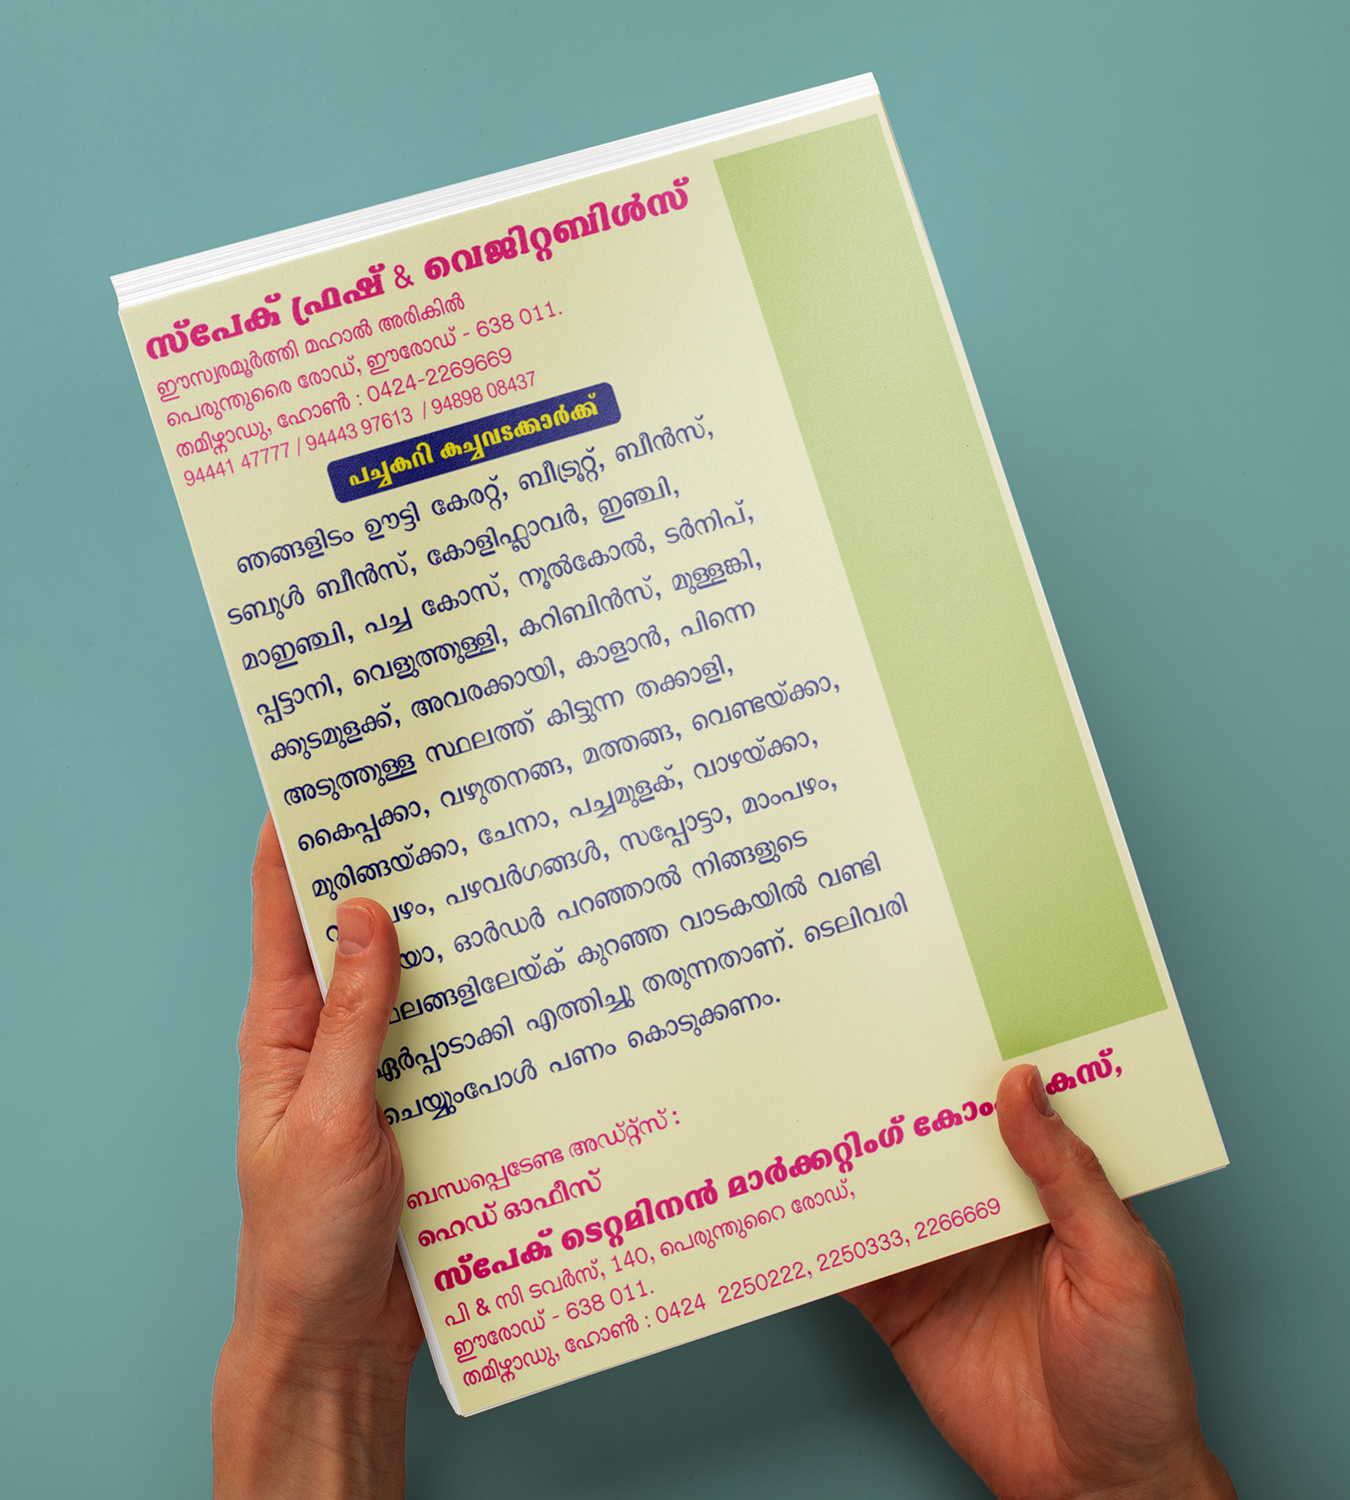 സ്പേക് ഫ്രഷ് & വെജിറ്റബിൾസ്
ഈസ്വരമൂർത്തി മഹാൽ അരികിൽ
പെരുന്തുരൈ രോഡ്, ഈരോഡ് - 638 011.
തമിഴ്നാഡു, ഹോൺ : 0424-2269669
94441 47777 / 94443 97613 / 94898 08437
പച്ചകറി കച്ചവടക്കാർക്ക്
ഞങ്ങളിടം ഊട്ടി കേരറ്റ്, ബീട്രൂറ്റ്, ബീൻസ്,
ടബുൾ ബീൻസ്, കോളിഫ്ലാവർ, ഇഞ്ചി,
മാഇഞ്ചി, പച്ച കോസ്, നൂൽകോൽ, ടർനിപ്,
പ്പട്ടാനി, വെളുത്തുള്ളി, കറിബിൻസ്, മുള്ളങ്കി,
ക്കുടമുളക്ക്, അവരക്കായി, കാളാൻ, പിന്നെ
അടുത്തുള്ള സ്ഥലത്ത് കിട്ടുന്ന തക്കാളി,
കൈപ്പക്കാ, വഴുതനങ്ങ, മത്തങ്ങ, വെണ്ടയ്ക്കാ,
മുരിങ്ങയ്ക്കാ, ചേനാ, പച്ചമുളക്, വാഴയ്ക്കാ,
പഴവർഗങ്ങൾ, സപ്പോട്ടാ, മാംപഴം,
ഓർഡർ പറഞ്ഞാൽ നിങ്ങളുടെ
കുറഞ്ഞ വാടകയിൽ വണ്ടി
ഏർപ്പാടാക്കി എത്തിച്ചു തരുന്നതാണ്. ടെലിവരി
ചെയ്യുംപോൾ പണം കൊടുക്കണം.
ബന്ധപ്പെടേണ്ട അഡ്റ്റ്സ് :
ഹെഡ് ഓഫീസ്
സ്പേക് ടെറ്റമിനൻ മാർക്കറ്റിംഗ്
പി & സി ടവർസ്, 140, പെരുന്തുറൈ രോഡ്,
ഈരോഡ് - 638 011.
തമിഴ്നാഡു, ഹോൺ : 0424 2250222, 2250333, 2266669